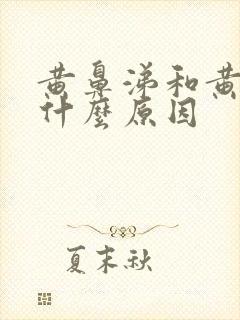 黄鼻涕和黄
什麼原因
夏末秋